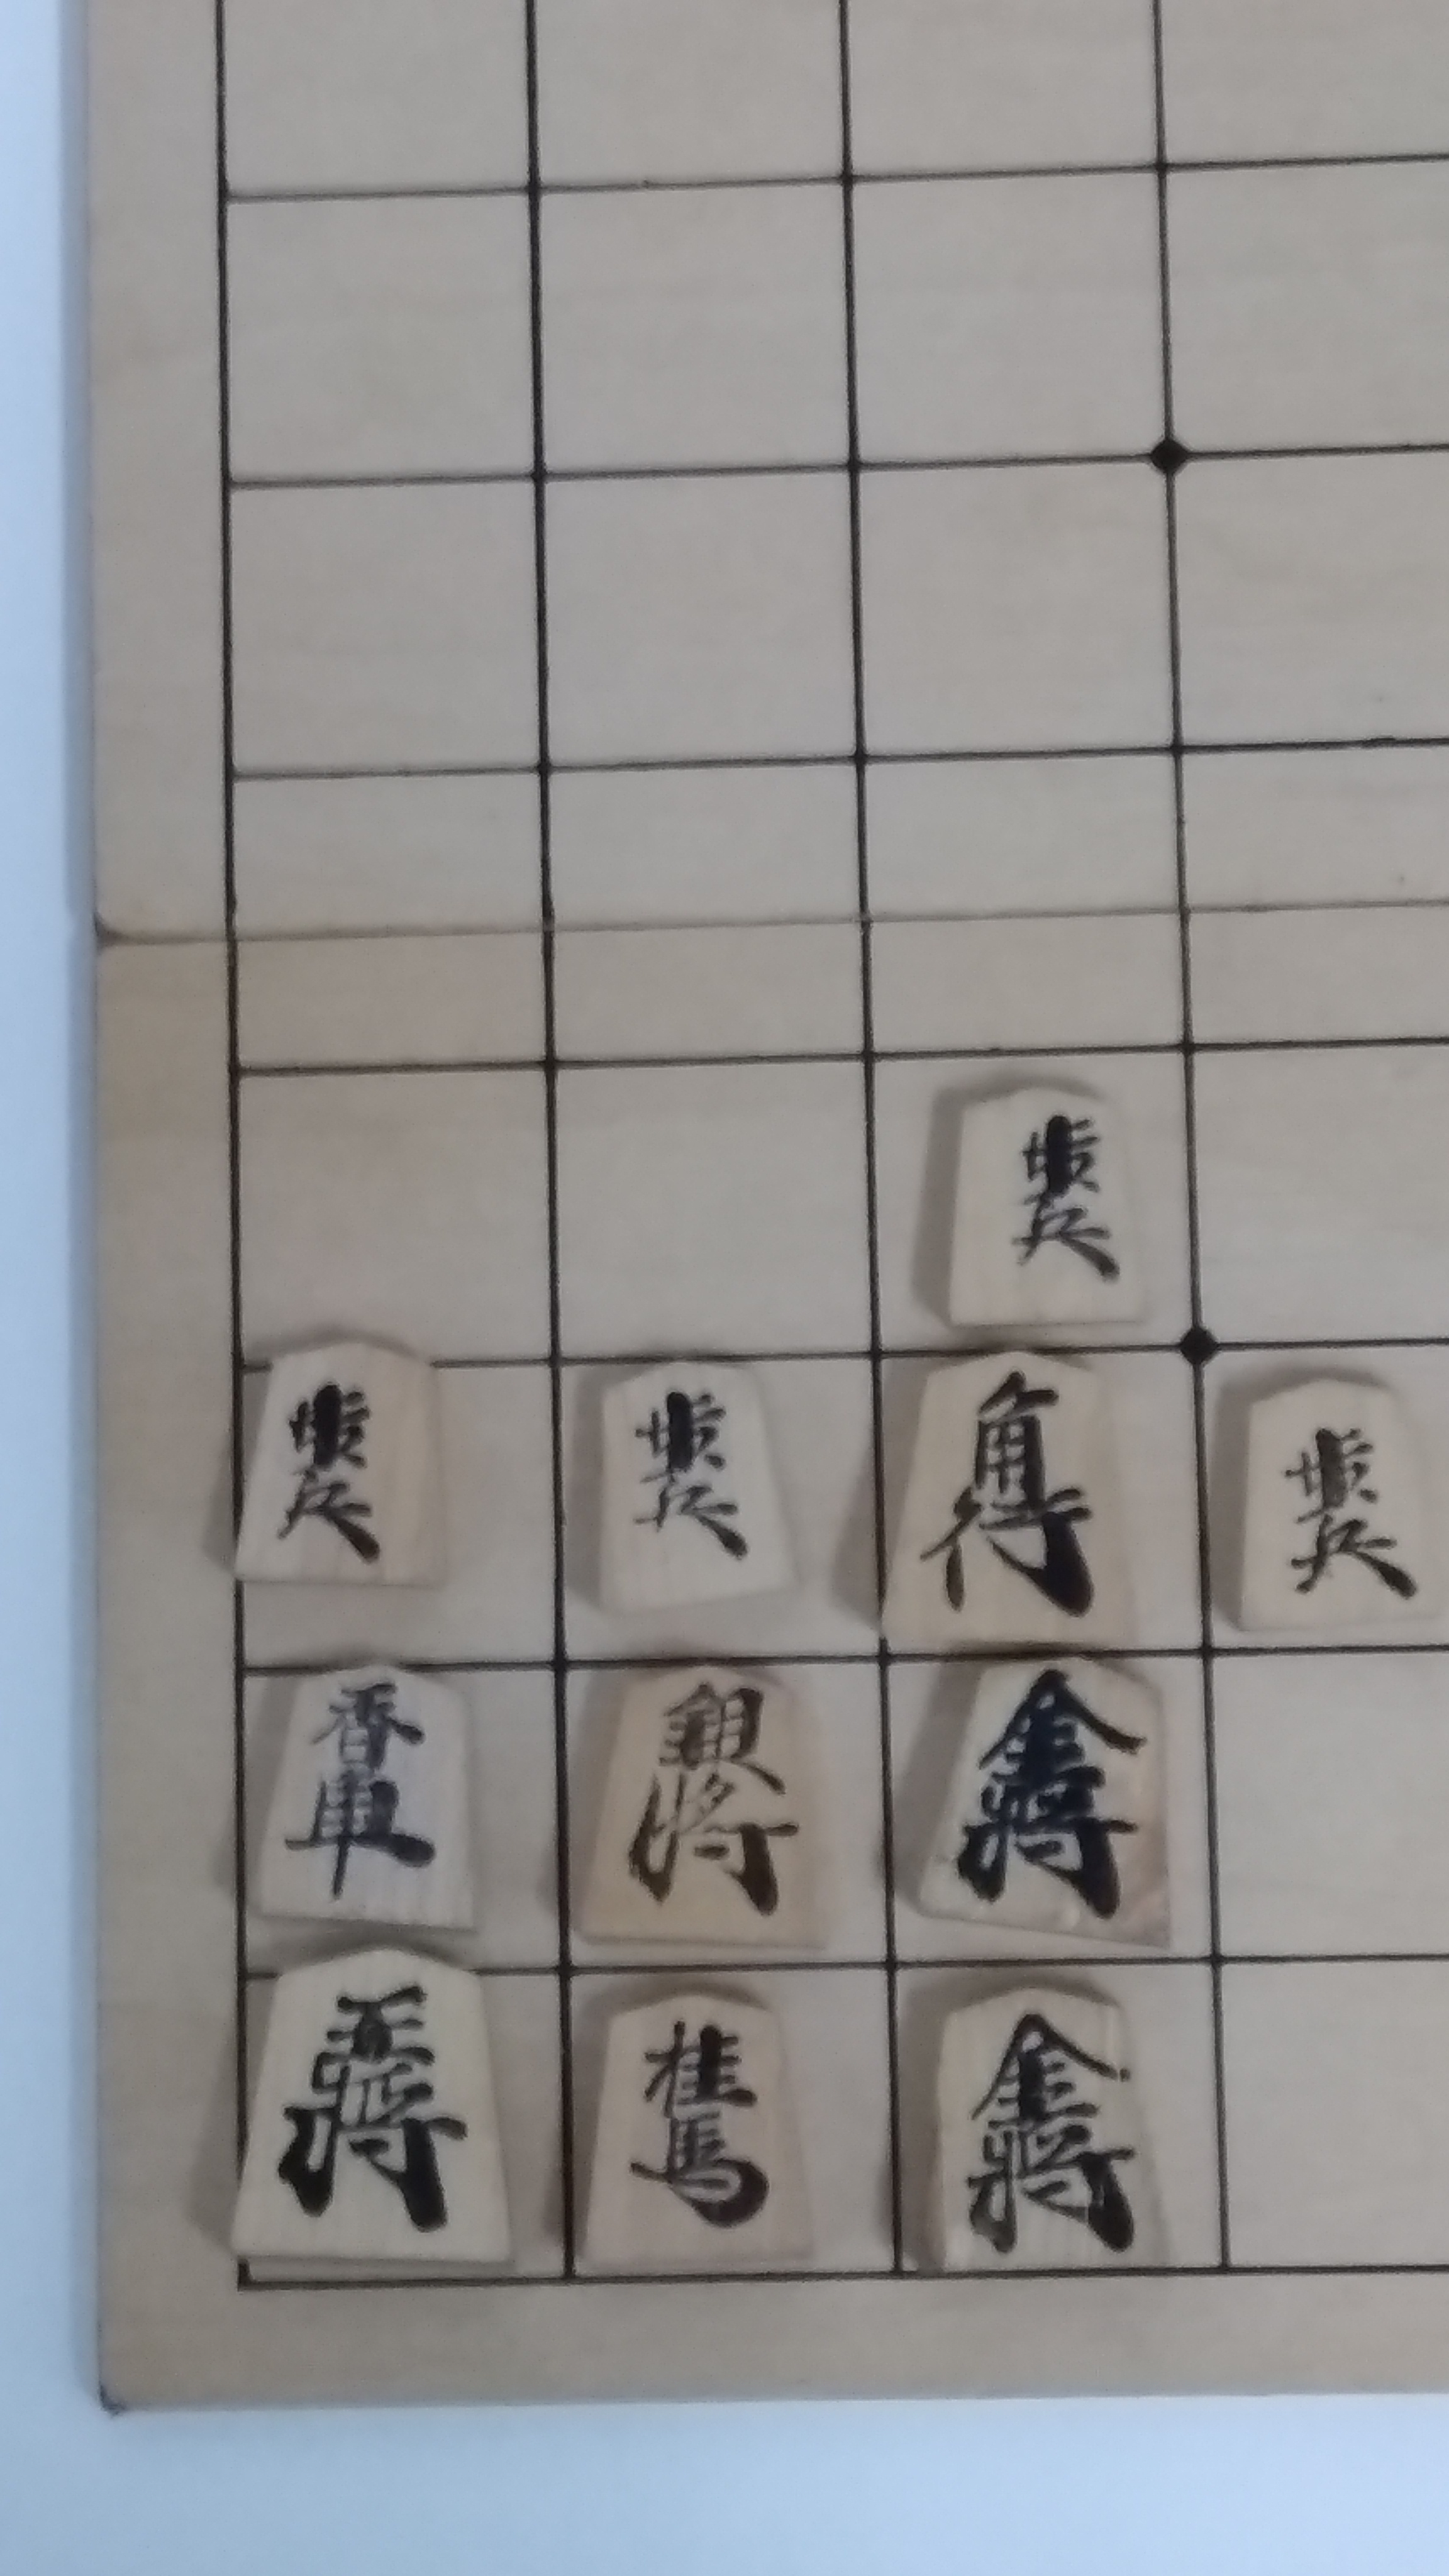 歩兵
歩兵
歩兵
角行
歩兵
香車
銀将
金将
王将
桂馬
金将